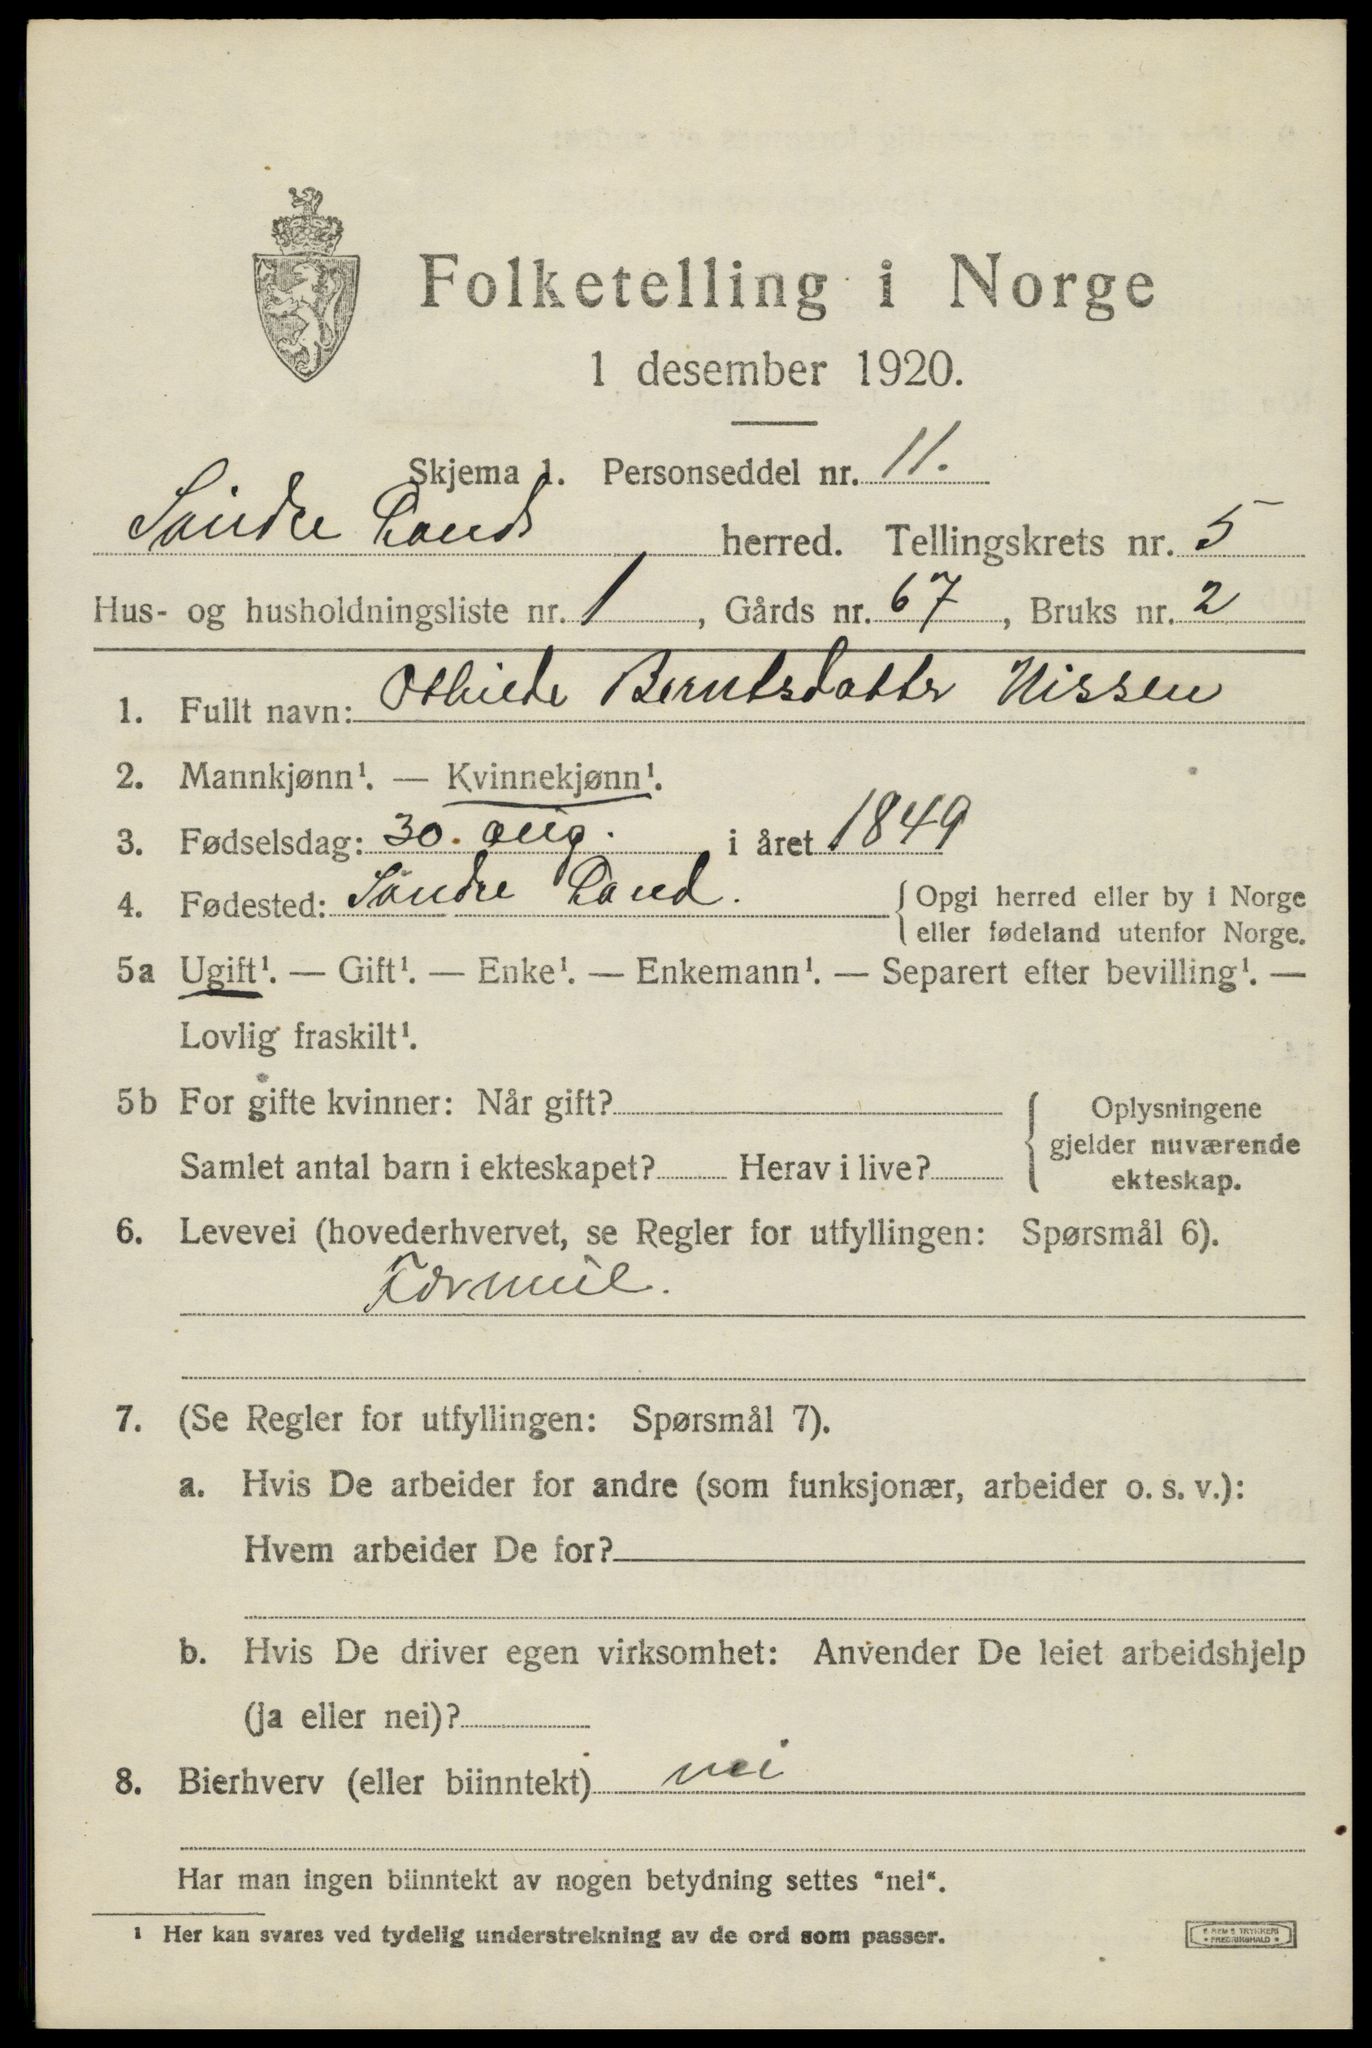 Folketelling i Norge
1 desember 1920.
Skjema 1. Personseddel nr. 11.
Søndre Lands herred. Tellingskrets nr. 5
Hus- og husholdningsliste nr. 1, Gårds nr. 67, Bruks nr. 2
1. Fullt navn: Berntsdatter Nissen
2. Mannkjønn¹. — Kvinnekjønn¹.
3. Fødselsdag: 30. aug. i året 1849
4. Fødested: Søndre Land. { Opgi herred eller by i Norge
eller fødeland utenfor Norge.
5a Ugift¹. — Gift¹. — Enke¹. — Enkemann¹. — Separert efter bevilling¹. —
Lovlig fraskilt¹.
5b For gifte kvinner: Når gift?
Samlet antal barn i ekteskapet? Herav i live?
{ Oplysningene
gjelder nuværende
ekteskap.
6. Levevei (hovederhvervet, se Regler for utfyllingen: Spørsmål 6).
7. (Se Regler for utfyllingen: Spørsmål 7).
a. Hvis De arbeider for andre (som funksjonær, arbeider o. s. v.):
Hvem arbeider De for?
b. Hvis De driver egen virksomhet: Anvender De leiet arbeidshjelp
(ja eller nei)?
8. Bierhverv (eller biinntekt) nei
Har man ingen biinntekt av nogen betydning settes "nei".
¹ Her kan svares ved tydelig understrekning av de ord som passer.